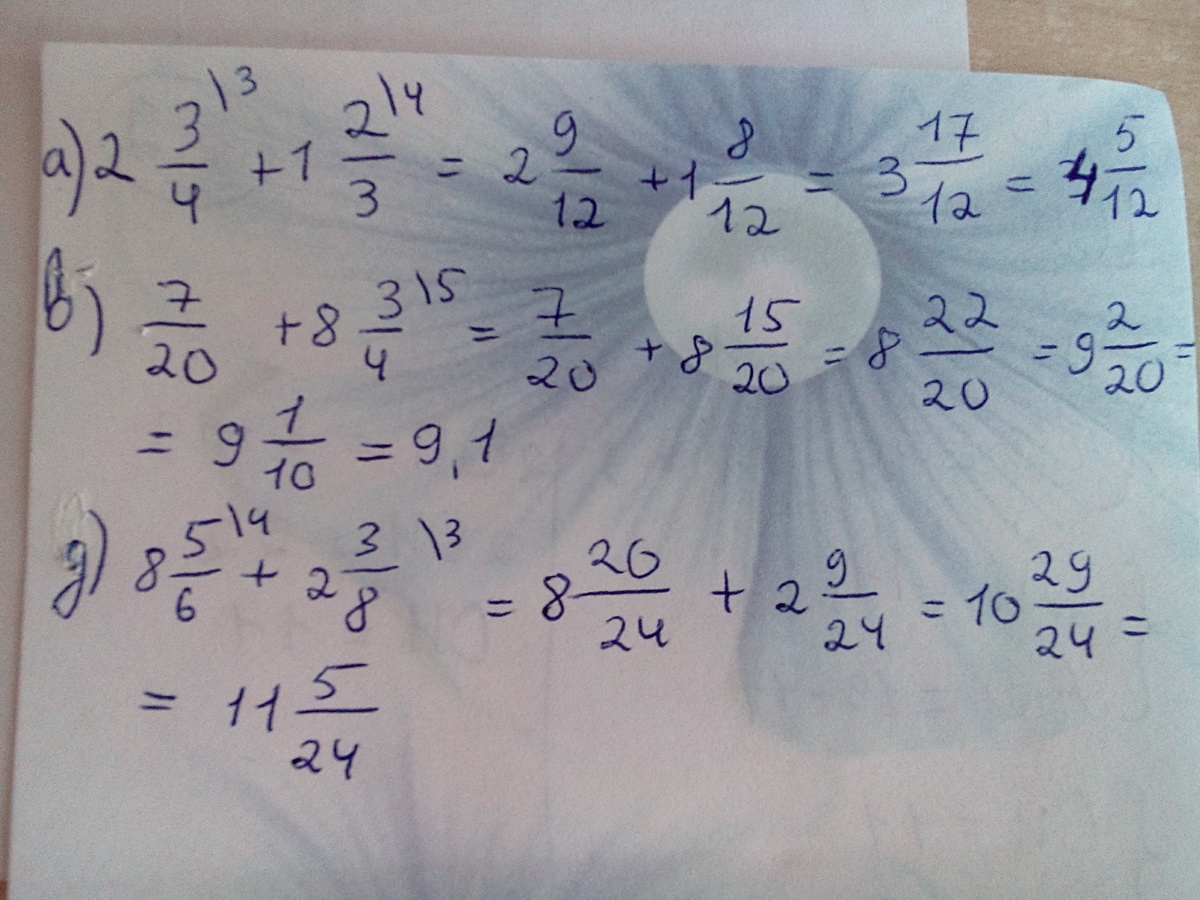 а) 2 3/4 \3 + 1 2/3 \4 = 2 9/12 + 1 8/12 = 3 17/12 = 4 5/12
в) 7/20 + 8 3/4 \5 = 7/20 + 8 15/20 = 8 22/20 = 9 2/20 =
= 9 1/10 = 9,1
д) 8 5/6 \4 + 2 3/8 \3 = 8 20/24 + 2 9/24 = 10 29/24 =
= 11 5/24